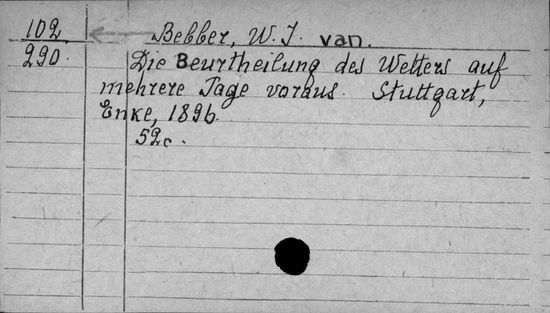 102 Bebber, W. J. van.
290. Die Beurtheilung des Wetters auf
mehrere Tage voraus. Stuttgart,
Enke, 1896.
52c.